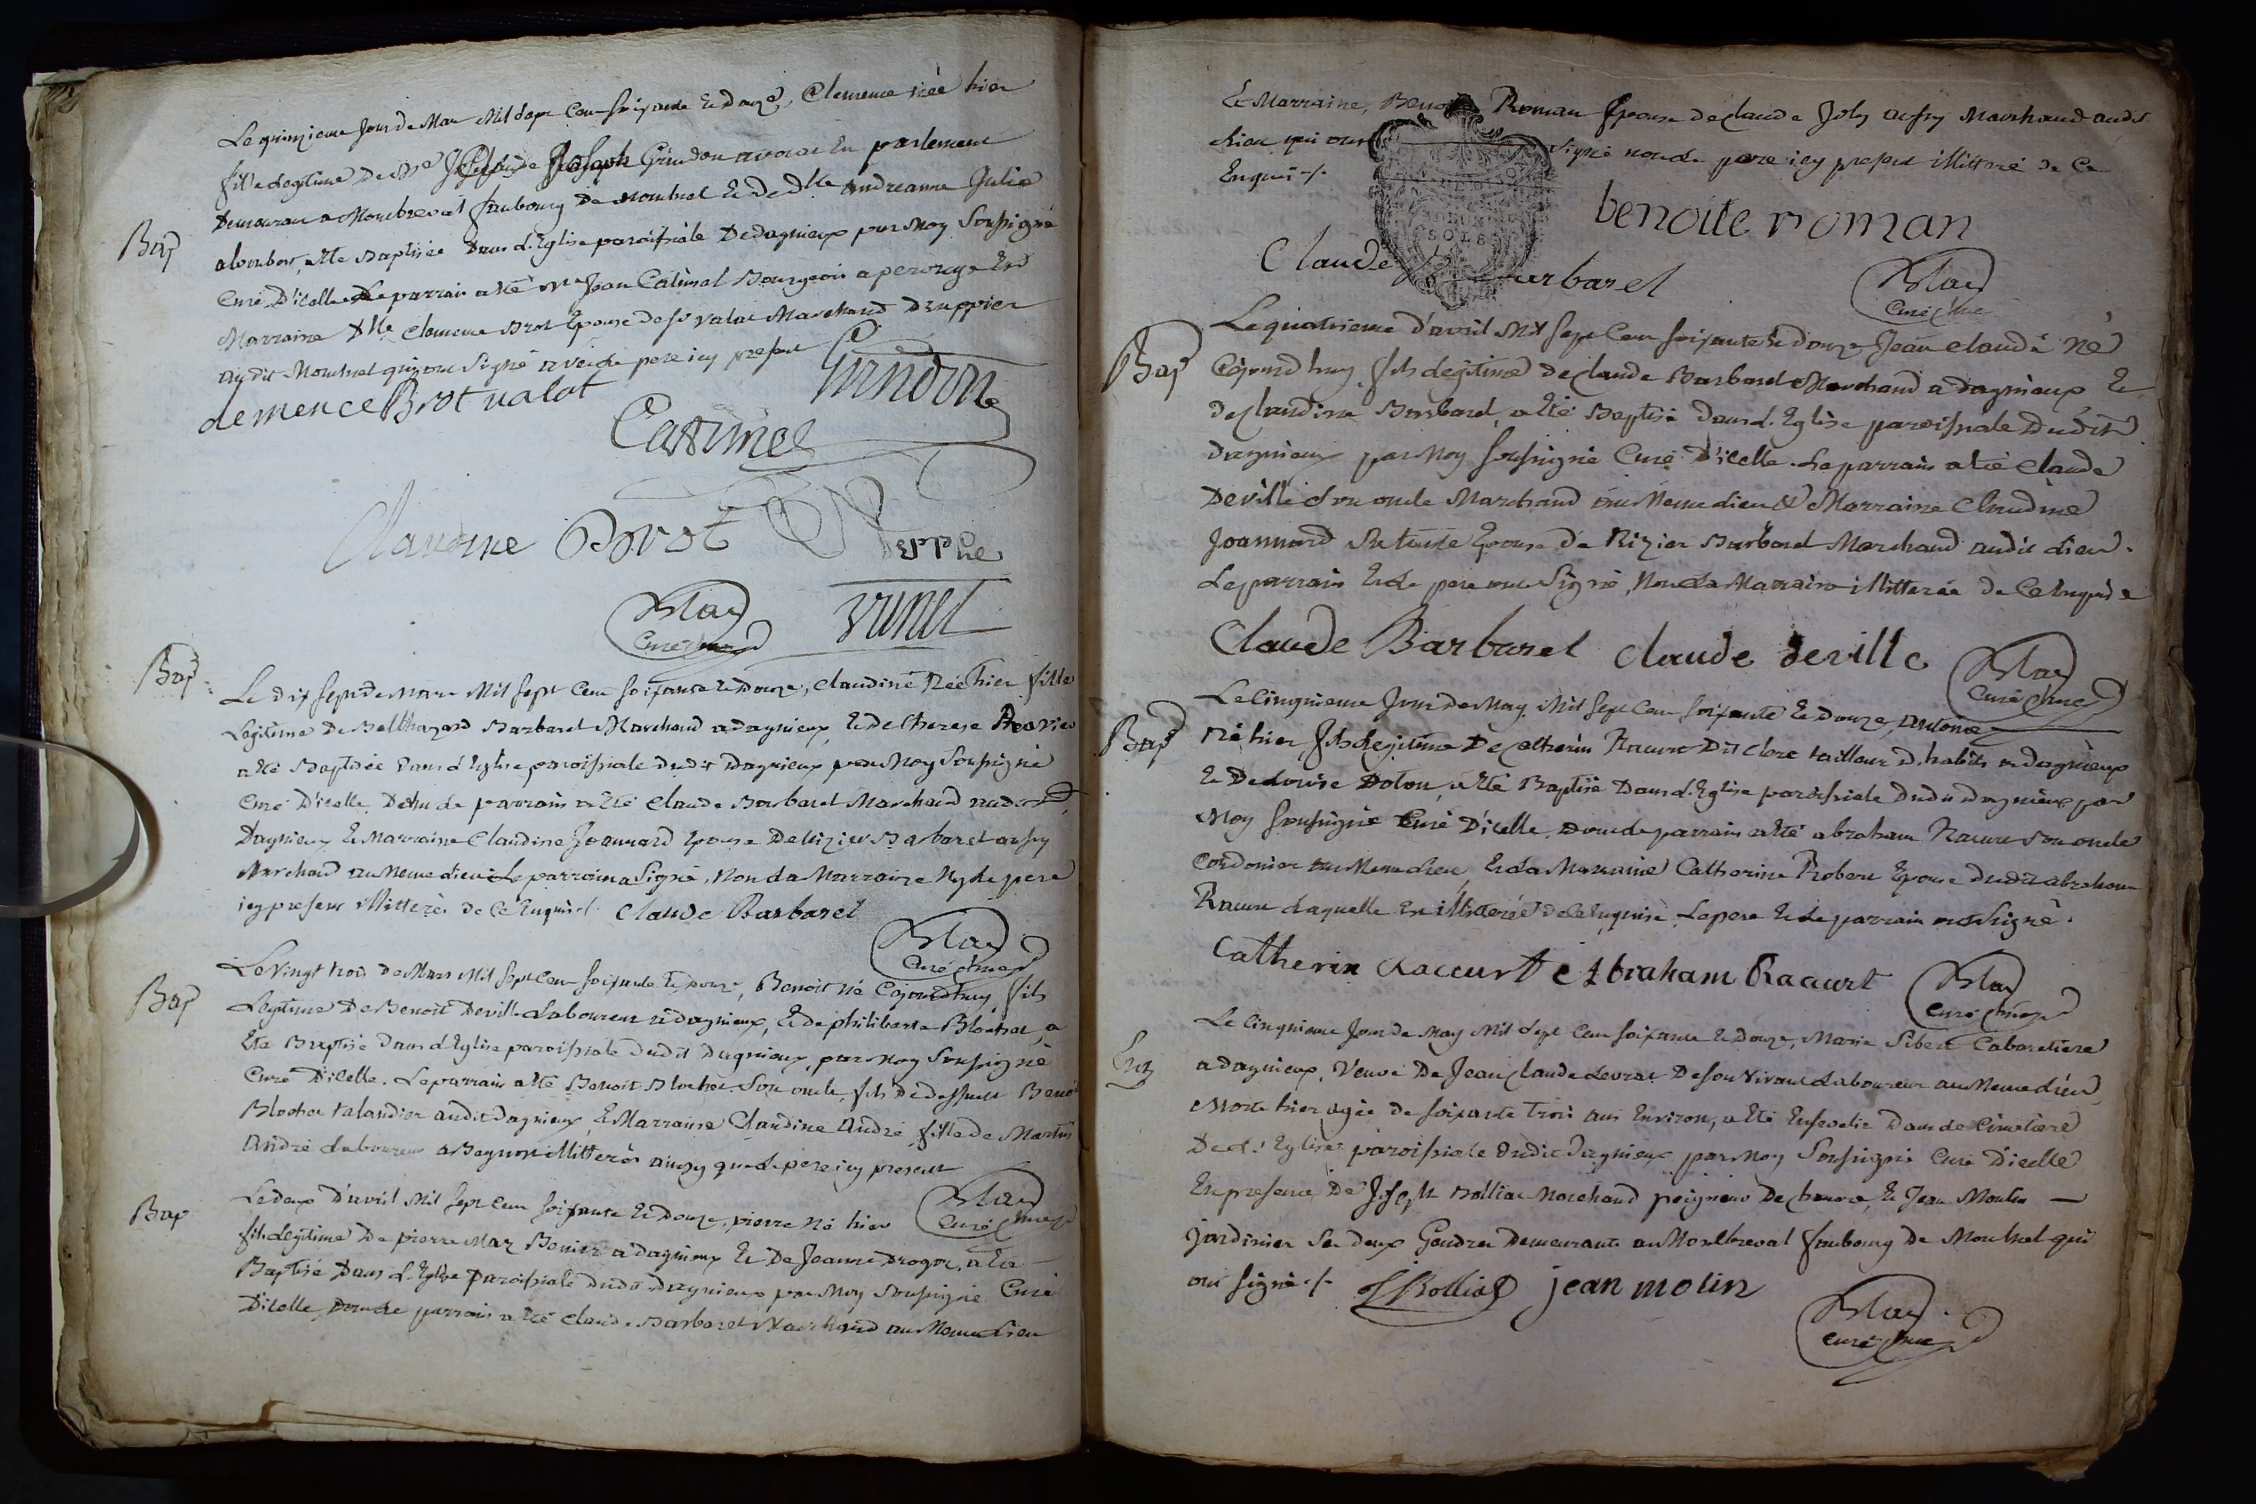 Le quinzieme jour de Mars Mil Sept Cent soixante Et douze, Clemence née hier
fille legitime de Mre Joseph Grindon avocat En parlement
Demeurant a Montbreval faubourg De Montluel Et de dlle Andreanne Julie
Bap
a Eté Baptisée Dans l'Eglise paroissiale De dagnieux par Moy Soussigné
Curé D'icelle Le parrain a Eté Mre Jean Catimel Bourgeois a perouge Et
Marraine Dlle Clemence Brot Epouse de sr valat Marchand Drappier
audit Montluel qui ont Signé avec le pere icy present
Grindon
clemence Brot valat
Catimel
Claudine Bovot
Vunel
Blay
Curé
Bap
Le dix sept de Mars Mil Sept Cent soixante Et Douze, Claudine Née hier fille
Legitime De Balthazard Barbaret Marchand a dagnieux, Et de Therese
a Eté Baptisée Dans l'Eglise paroissiale dudit Dagnieux par Moy Soussigné
Curé D'icelle, Dont le parrain a Eté Claude Barbaret Marchand audit
Dagnieux Et Marraine Claudine Joannard Epouse De Rizier Barbaret aussy
Marchand au Meme lieu Le parrain a Signé, Non La Marraine Ny le pere
icy present illitterés de Ce Enquis. Claude Barbaret
Blay
Curé
Bap
Le Vingt trois de Mars Mil Sept Cent soixante Et douze, Benoit né Cejourdhuy, fils
Legitime De Benoit Deville Laboureur a dagnieux, Et de philiberte Blochet, a
Eté Baptisé Dans l'Eglise paroissiale dudit Dagnieux, par Moy Soussigné
Curé D'icelle. Le parrain a Eté Benoit Blochet Son oncle, fils De deffunt Benoit
Blochet taLandier audit Dagnieux, Et Marraine Claudine André fille de Martin
André Laboureur a illitterés ainsy que le pere icy present
Blay
Curé
Bap
Le deux D'avril Mil Sept Cent soixante Et Douze, pierre Né hier
fils Legitime De pierre a dagnieux Et De Jeanne Drogon, a Eté
Baptisé Dans L'Eglise paroissiale Dudit Dagnieux par Moy Soussigné Curé
D'icelle, Dont le parrain a Eté Claude Barbaret Marchand au Meme Lieu
Et Marraine, Benoite Roman Epouse de Claude Joly aussy Marchand audit
Lieu qui ont Signé non le pere icy present illitteré de Ce
Enquis
benoite roman
Claude Barbaret
Blay
Curé
Bap
Le quatrieme d'avril Mil Sept Cent soixante Et Douze Jean Claude Né
Cejourdhuy, fils légitime de Claude Barbaret Marchand a dagnieux Et
de Claudine Barbaret, a Eté Baptisé Dans L'Eglise paroissiale Dudit
Dagnieux par Moy Soussigné Curé D'icelle. Le parrain a Eté Claude
Deville Son oncle Marchand au Meme lieu Et Marraine Claudine
Joannard Sa tante Epouse De Rizier Barbaret Marchand audit Lieu.
Le parrain Et le pere ont Signé, Non La Marraine illitterée de Ce Enquise
Claude Barbaret Claude deville
Blay
Curé
Bap
Le Cinquieme Jour De May Mil Sept Cent soixante Et Douze, Antoine
Né hier, fils Legitime De Catherin Racurt Dit Clerc tailleur D'habits a dagnieux
Et De Louise Dolon, a Eté Baptisé Dans L'Eglise paroissiale Dudit Dagnieux par
Moy Soussigné Curé D'icelle, Dont le parrain a Eté abraham Racurt Son oncle
Cordonier au Meme Lieu, Et La Marraine Catherine Robert Epouse Dudit abraham
Racurt Laquelle Est illitterée de Ce Enquise. Le pere Et le parrain ont Signé.
Catherin Raccurt Abraham Racurt
Blay
Curé
Le Cinquieme Jour de May Mil Sept Cent soixante Et Douze, Marie Sibert Cabaretiere
a dagnieux, Veuve De Jean Claude Levrat De son Vivant Laboureur au Meme Lieu,
Morte hier agée de soixante trois ans Environ, a Eté Ensevelie Dans le Cimetiere
De L'Eglise paroissiale dudit Dagnieux par Moy Soussigné Curé D'icelle
En presence De Joseph Bolliat Marchand peigneur De chanvre, Et Jean Moulin
jardinier Ses deux Gendres Demeurants au Montbreval faubourg De Montluel qui
ont Signé
J Bolliat jean molin
Blay
Curé